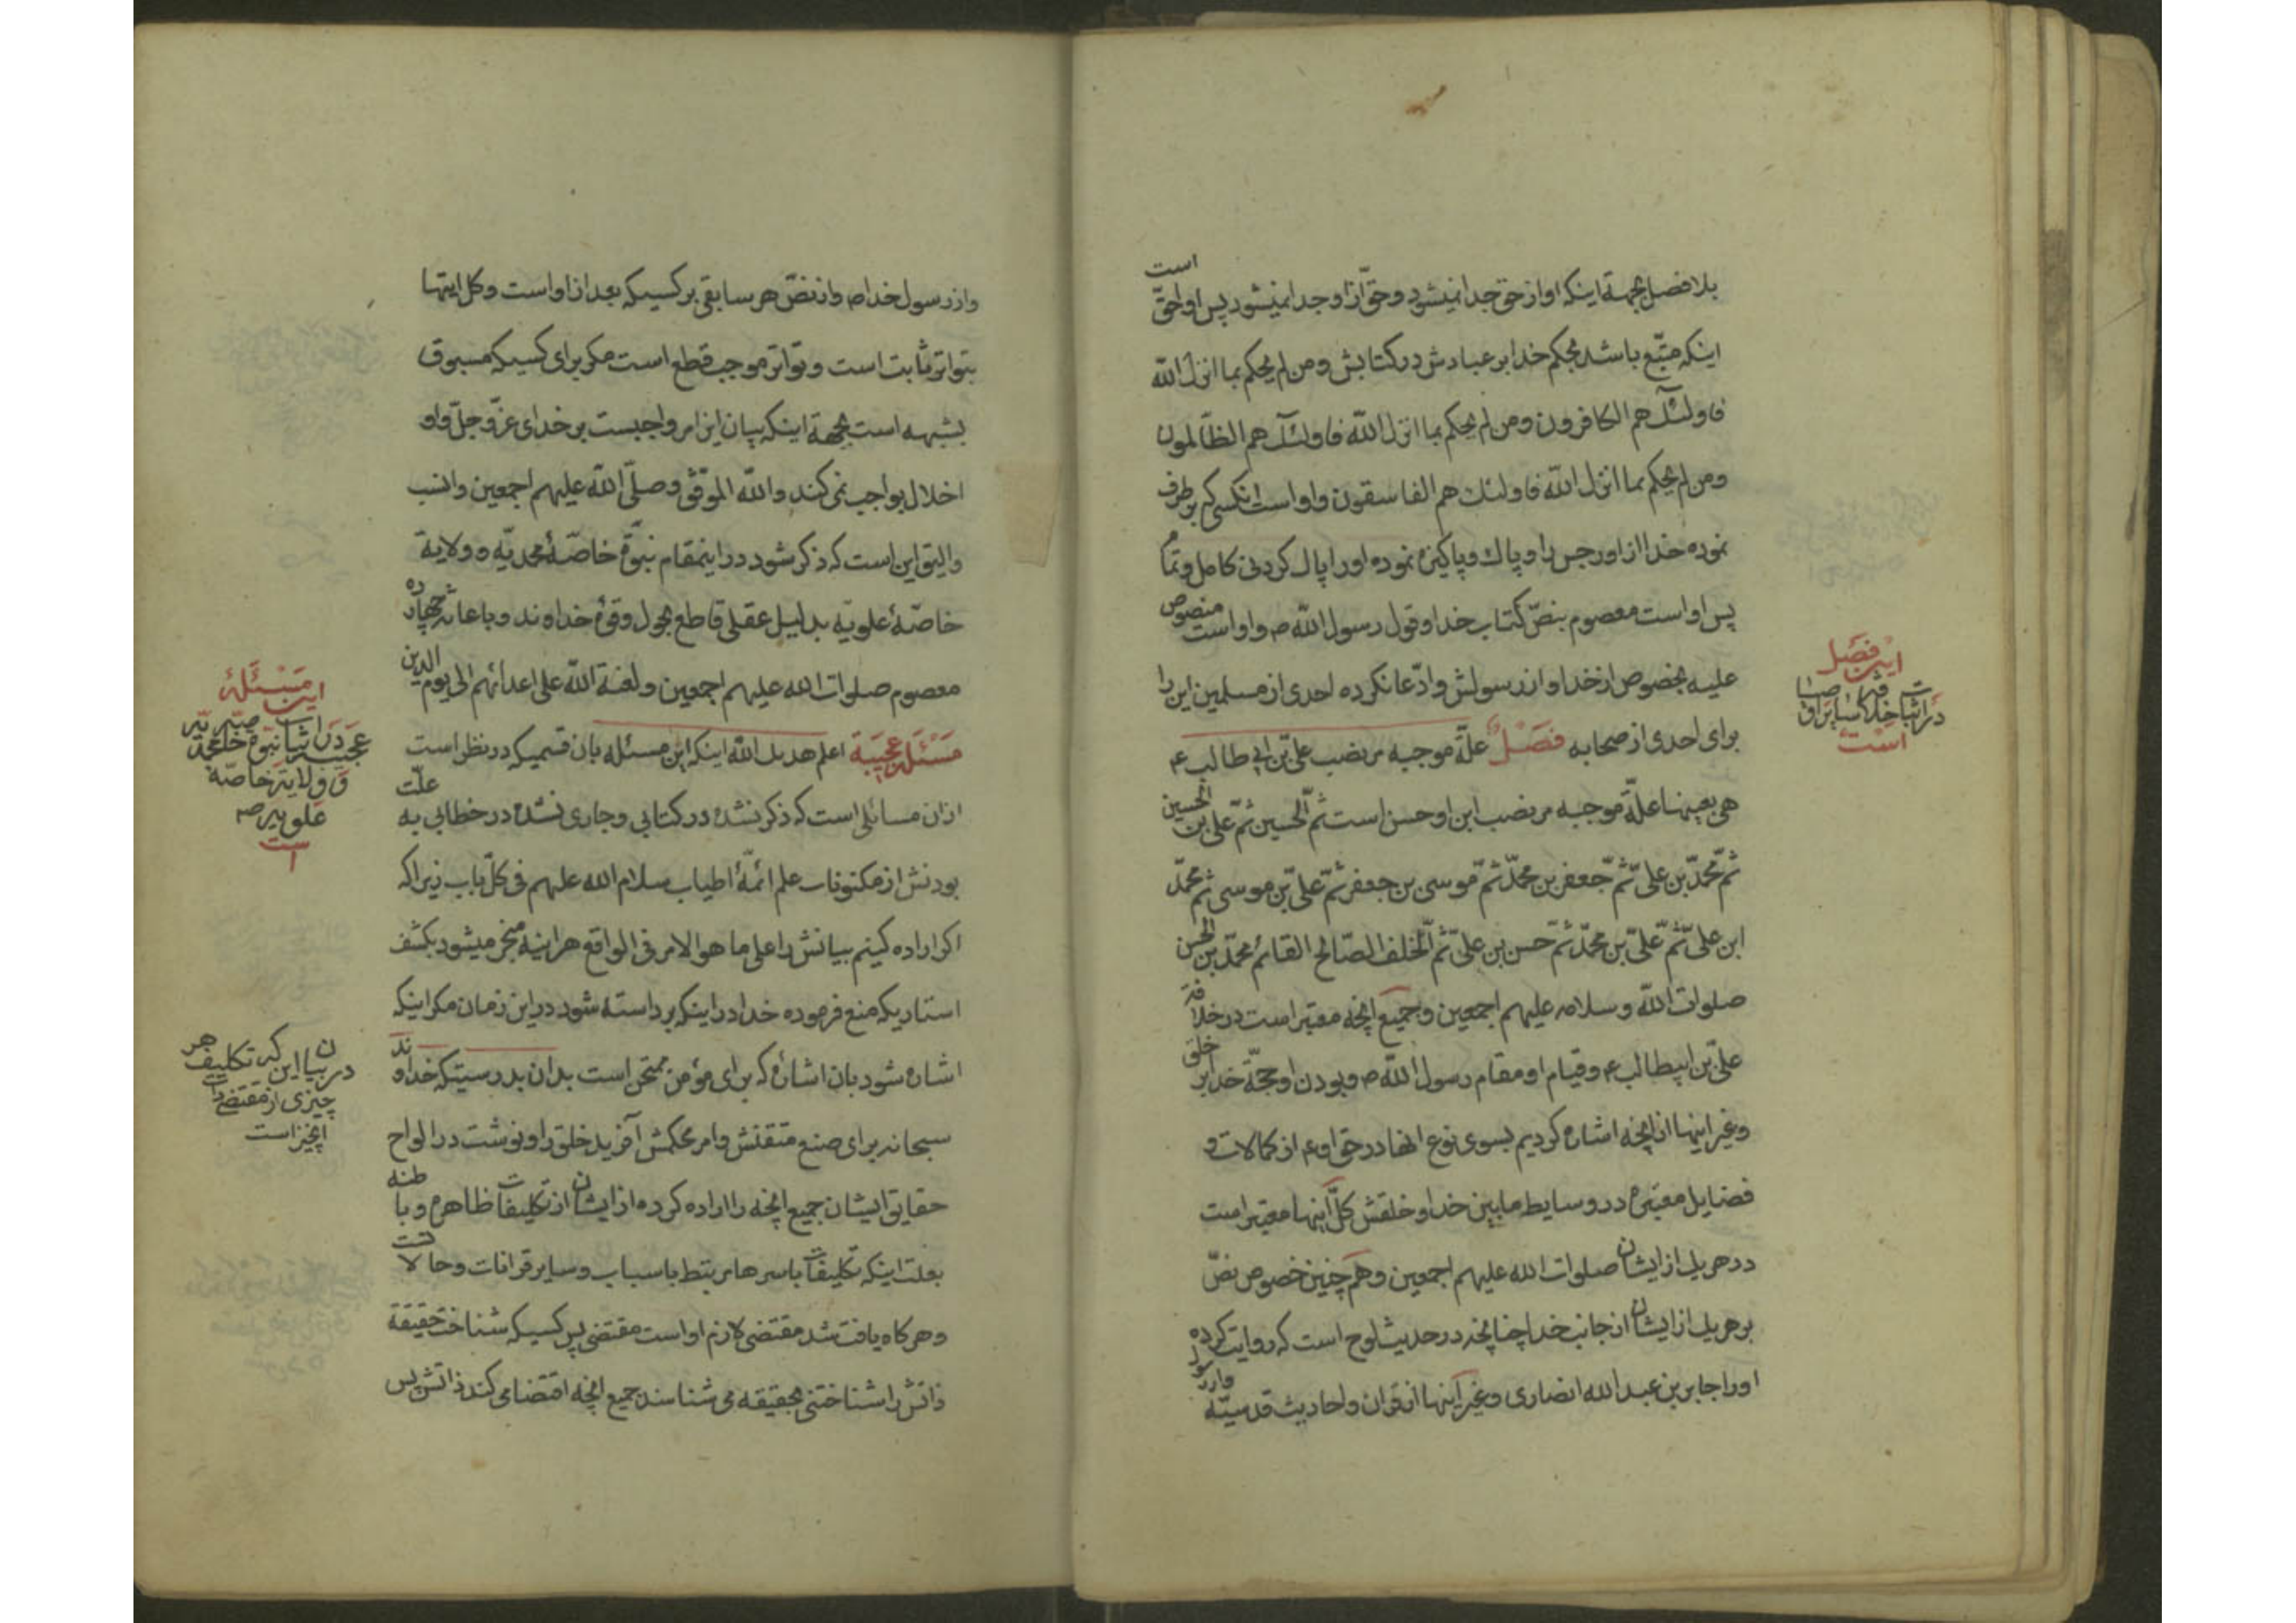 بلافصل بجهة اینکه او از حق جدا نمیشود و حق از او جدا نمیشود پس او احقّ است
اینکه متّبع باشد بحکم خدا بر عبادش در کتابش ومن لم یحکم بما انزل الله
فاولئک هم الکافرون ومن لم یحکم بما انزل الله فاولئک هم الظالمون
ومن لم یحکم بما انزل الله فاولئک هم الفاسقون و او است انکسی که برطرف
نموده خدا از او رجس را و پاک و پاکیزه نموده او را پاک کردنی کامل و تمام
پس او است معصوم بنصّ کتاب خدا و قول رسول الله ص و او است منصوص
علیه بخصوص از خدا و از رسولش و ادّعا نکرده احدی از مسلمین این را
برای احدی از صحابه فصل علّة موجبه مر نصب علی بن ابی طالب ع
هی بعینها علّة موجبه مر نصب ابن او حسن است ثمّ الحسین ثمّ علی بن الحسین
ثمّ محمّد بن علی ثمّ جعفر بن محمّد ثمّ موسی بن جعفر ثمّ علی بن موسی ثم محمّد
ابن علی ثمّ علی بن محمّد ثمّ حسن بن علی ثمّ الخلف الصّالح القائم محمّد بن الحسن
صلوات الله و سلامه علیهم اجمعین و جمیع انچه معتبر است در خلافة
علیّ بن ابیطالب ع و قیام او مقام رسول الله ص و بودن او حجّة خدا بر خلق
و غیر اینها از انچه اشاره کردیم بسوی نوع انها در حق او ع از کمالات و
فضایل معتبره در وسایط مابین خدا و خلقش کلّ اینها معتبر است
در هر یک از ایشان صلوات الله علیهم اجمعین و هم چنین خصوص نصّ
بر هر یک از ایشان از جانب خدا چنانچه در حدیث لوح است که روایت کرده
او را جابر بن عبدالله انصاری و غیر اینها از قران و احادیث قدسیّه
این فصل
در اثبات خلافة
است
و از رسول خدا ص و از نصّ هر سابقی بر کسیکه بعد از او است و کل اینها
بتواتر ثابت است و تواتر موجب قطع است مکر برای کسیکه مسبوق
بشبهه است بجهة اینکه بیان این امر واجبست بر خدای عزّ و جلّ و او
اخلال بواجب نمی کند والله الموفّق و صلّی الله علیهم اجمعین و انسب
و الیق این است که ذکر شود در اینمقام نبوّة خاصّهٔ محمدیّه و ولایة
خاصّهٔ علویّه بدلیل عقلی قاطع بحول و قوّة خداوند و باعانة چهارده
معصوم صلوات الله علیهم اجمعین ولعنة الله علی اعدائهم الی یوم الدین
مسئلة عجیبة اعلم هدیک الله اینکه این مسئله بان قسمیکه در نظر است
ازان مسائلی است که ذکر نشده در کتابی و جاری نشده در خطابی به علّت
بودنش از مکنونات علم ائمّهٔ اطیاب سلام الله علیهم فی کلّ باب زیرا که
اکر اراده کنیم بیانش را علی ما هو الامر فی الواقع هر اینه منجر میشود بکشف
استاریکه منع فرموده خدا در اینکه برداسته شود در این زمان مکر اینکه
اشاره شود بان اشارهٔ که برای مؤمن ممتحن است بدان بدرستیکه خداوند
سبحانه برای صنع متقنش و امر محکمش آفرید خلق را و نوشت در الواح
حقایق ایشان جمیع انچه را اراده کرده از ایشان از تکلیفات ظاهره و باطنه
بعلت اینکه تکلیفات باسرها مرتبط باسباب و سایر قرانات و حالات
و هرکاه یافت شد مقتضی لازم او است مقتضی پس کسیکه شناخت حقیقة
ذاتش را شناختنی بحقیقه می شناسد جمیع انچه اقتضا می کند ذاتش پس
این مسئلهٔ
عجیبه در اثبات نبوّة خاصّه محمدیّه
و ولایة خاصّه
علویه
است
در بیان این که تکلیف هر
چیزی از مقتضیات
انچیز است